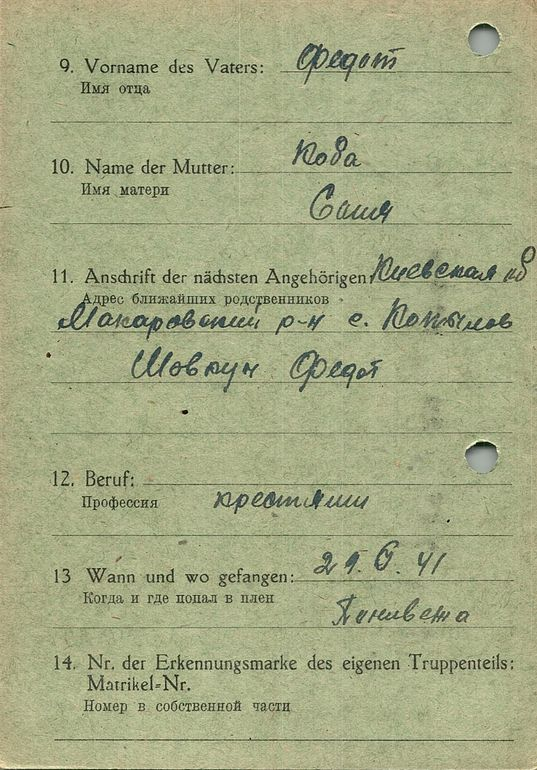 9. Vorname des Vaters: Федот
Имя отца
10. Name der Mutter: Коба
Имя матери
Саша
11. Anschrift der nächsten Angehörigen: Киевская об
Адрес ближайших родственников
Макаровский р-н с. Копылов
Шовкун Федот
12. Beruf:
Профессия крестьянин
13 Wann und wo gefangen: 29. VI. 41
Когда и где попал в плен
14. Nr. der Erkennungsmarke des eigenen Truppenteils:
Matrikel-Nr.
Номер в собственной части